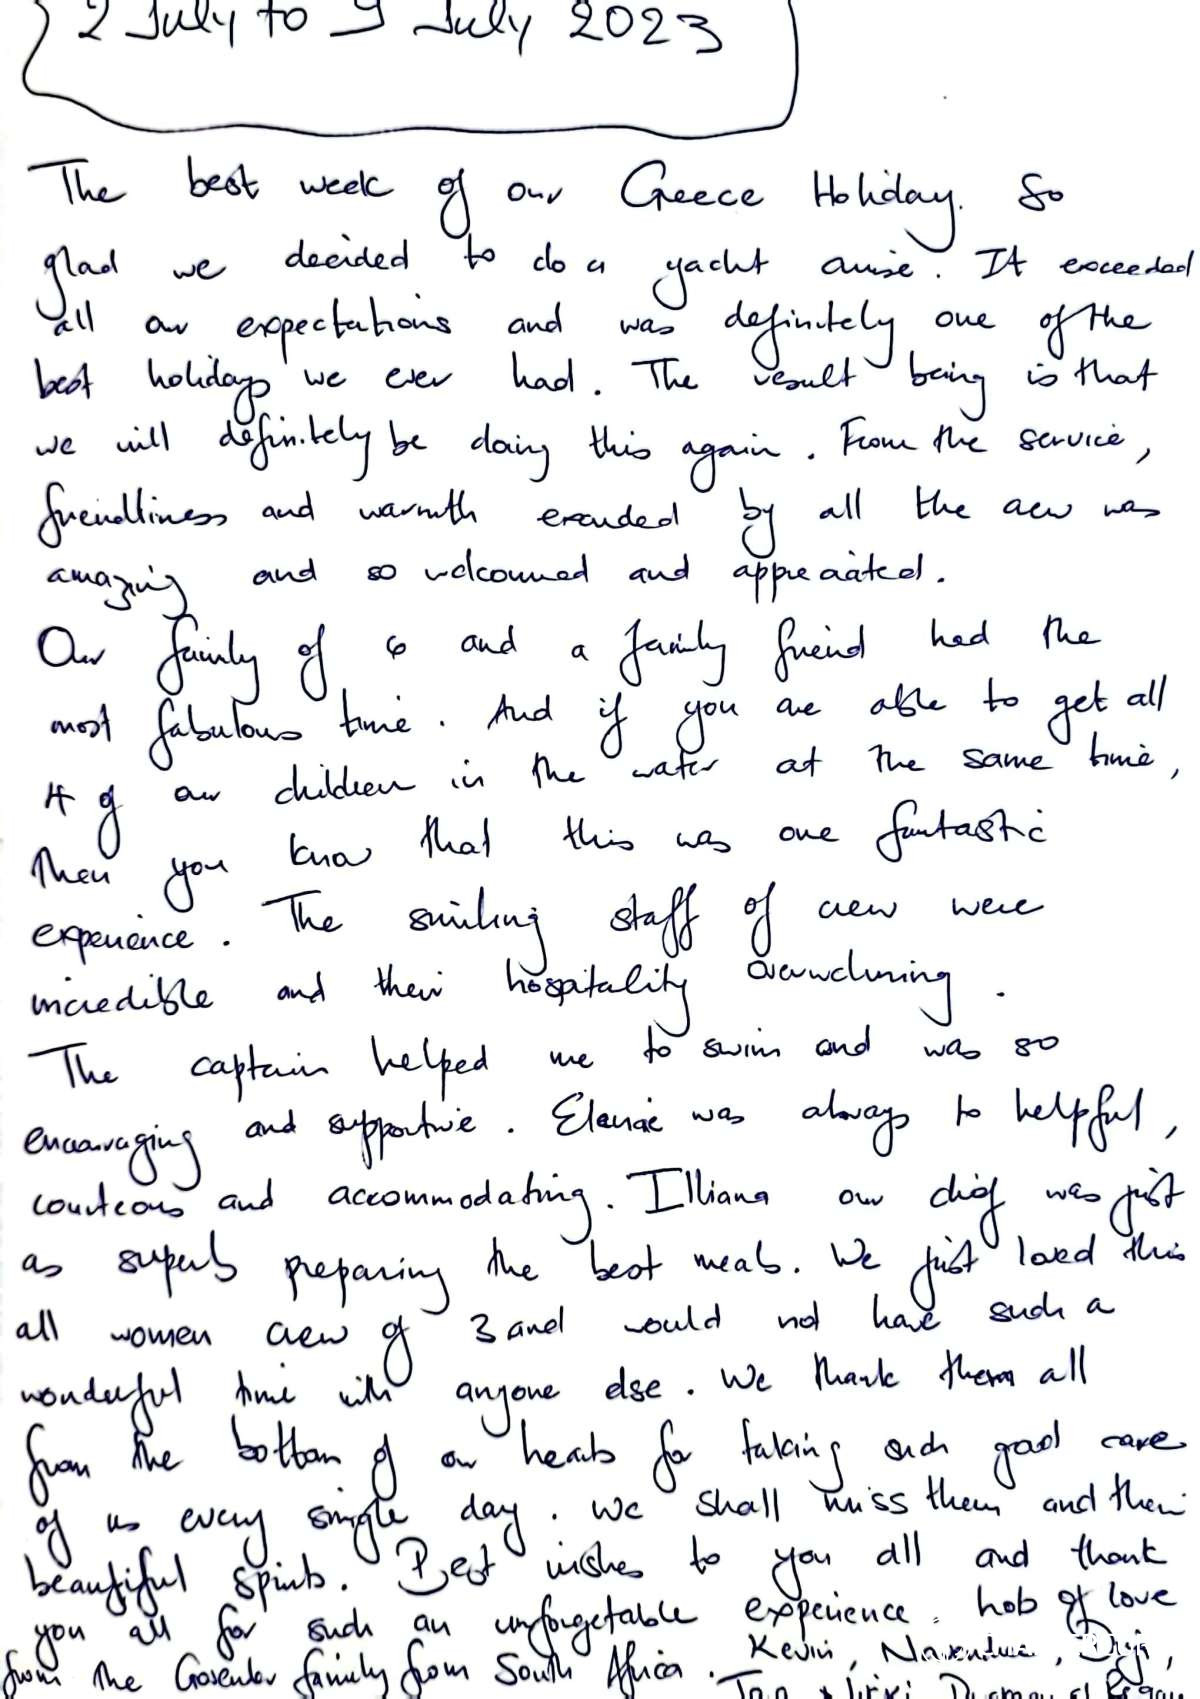 2 July to 9 July 2023
The best week of our Greece Holiday. So
glad we decided to do a yacht cruise. It exceeded
all our expectations and was definitely one of the
best holidays we ever had. The result being is that
we will definitely be doing this again. From the service,
friendliness and warmth exuded by all the crew was
amazing and so welcomed and appreciated.
Our family of 6 and a family friend had the
most fabulous time. And if you are able to get all
4 of our children in the water at the same time,
then you know that this was one fantastic
experience. The smiling staff of crew were
incredible and their hospitality overwhelming.
The captain helped me to swim and was so
encouraging and supportive. was always to helpful,
courteous and accommodating. Illiana our chef was just
as superb preparing the best meals. We just loved this
all women crew of 3 and would not have such a
wonderful time with anyone else. We thank them all
from the bottom of our hearts for taking such good care
of us every single day. We shall miss them and their
beautiful spirits. Best wishes to you all and thank
you all for such an unforgetable experience. of love
from the family from South Africa. Kevin,